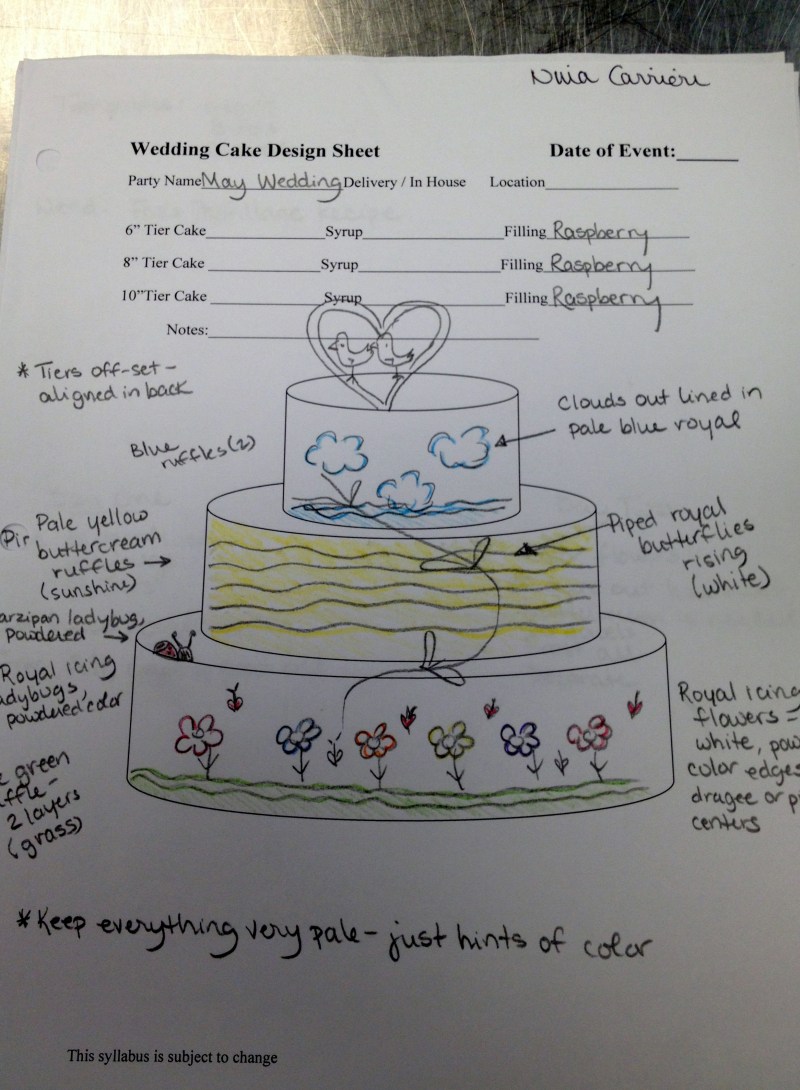 Nina Carrieri
Wedding Cake Design Sheet Date of Event:______
Party Name May Wedding Delivery / In House Location____________
6” Tier Cake____________Syrup____________Filling Raspberry
8” Tier Cake____________Syrup____________Filling Raspberry
10”Tier Cake____________Syrup____________Filling Raspberry
Notes:____________
* Tiers off-set -
aligned in back
Clouds out lined in
pale blue royal
Blue
ruffles (2)
Pale yellow
buttercream
ruffles →
(sunshine)
Piped royal
butterflies
rising
(white)
arzipan ladybug,
powdered →
Royal icing
adybugs,
powdered color
green
2 layers
(grass)
Royal icing
flowers =
white, pow
color edges
dragee or p
centers
*Keep everything very pale - just hints of color
This syllabus is subject to change